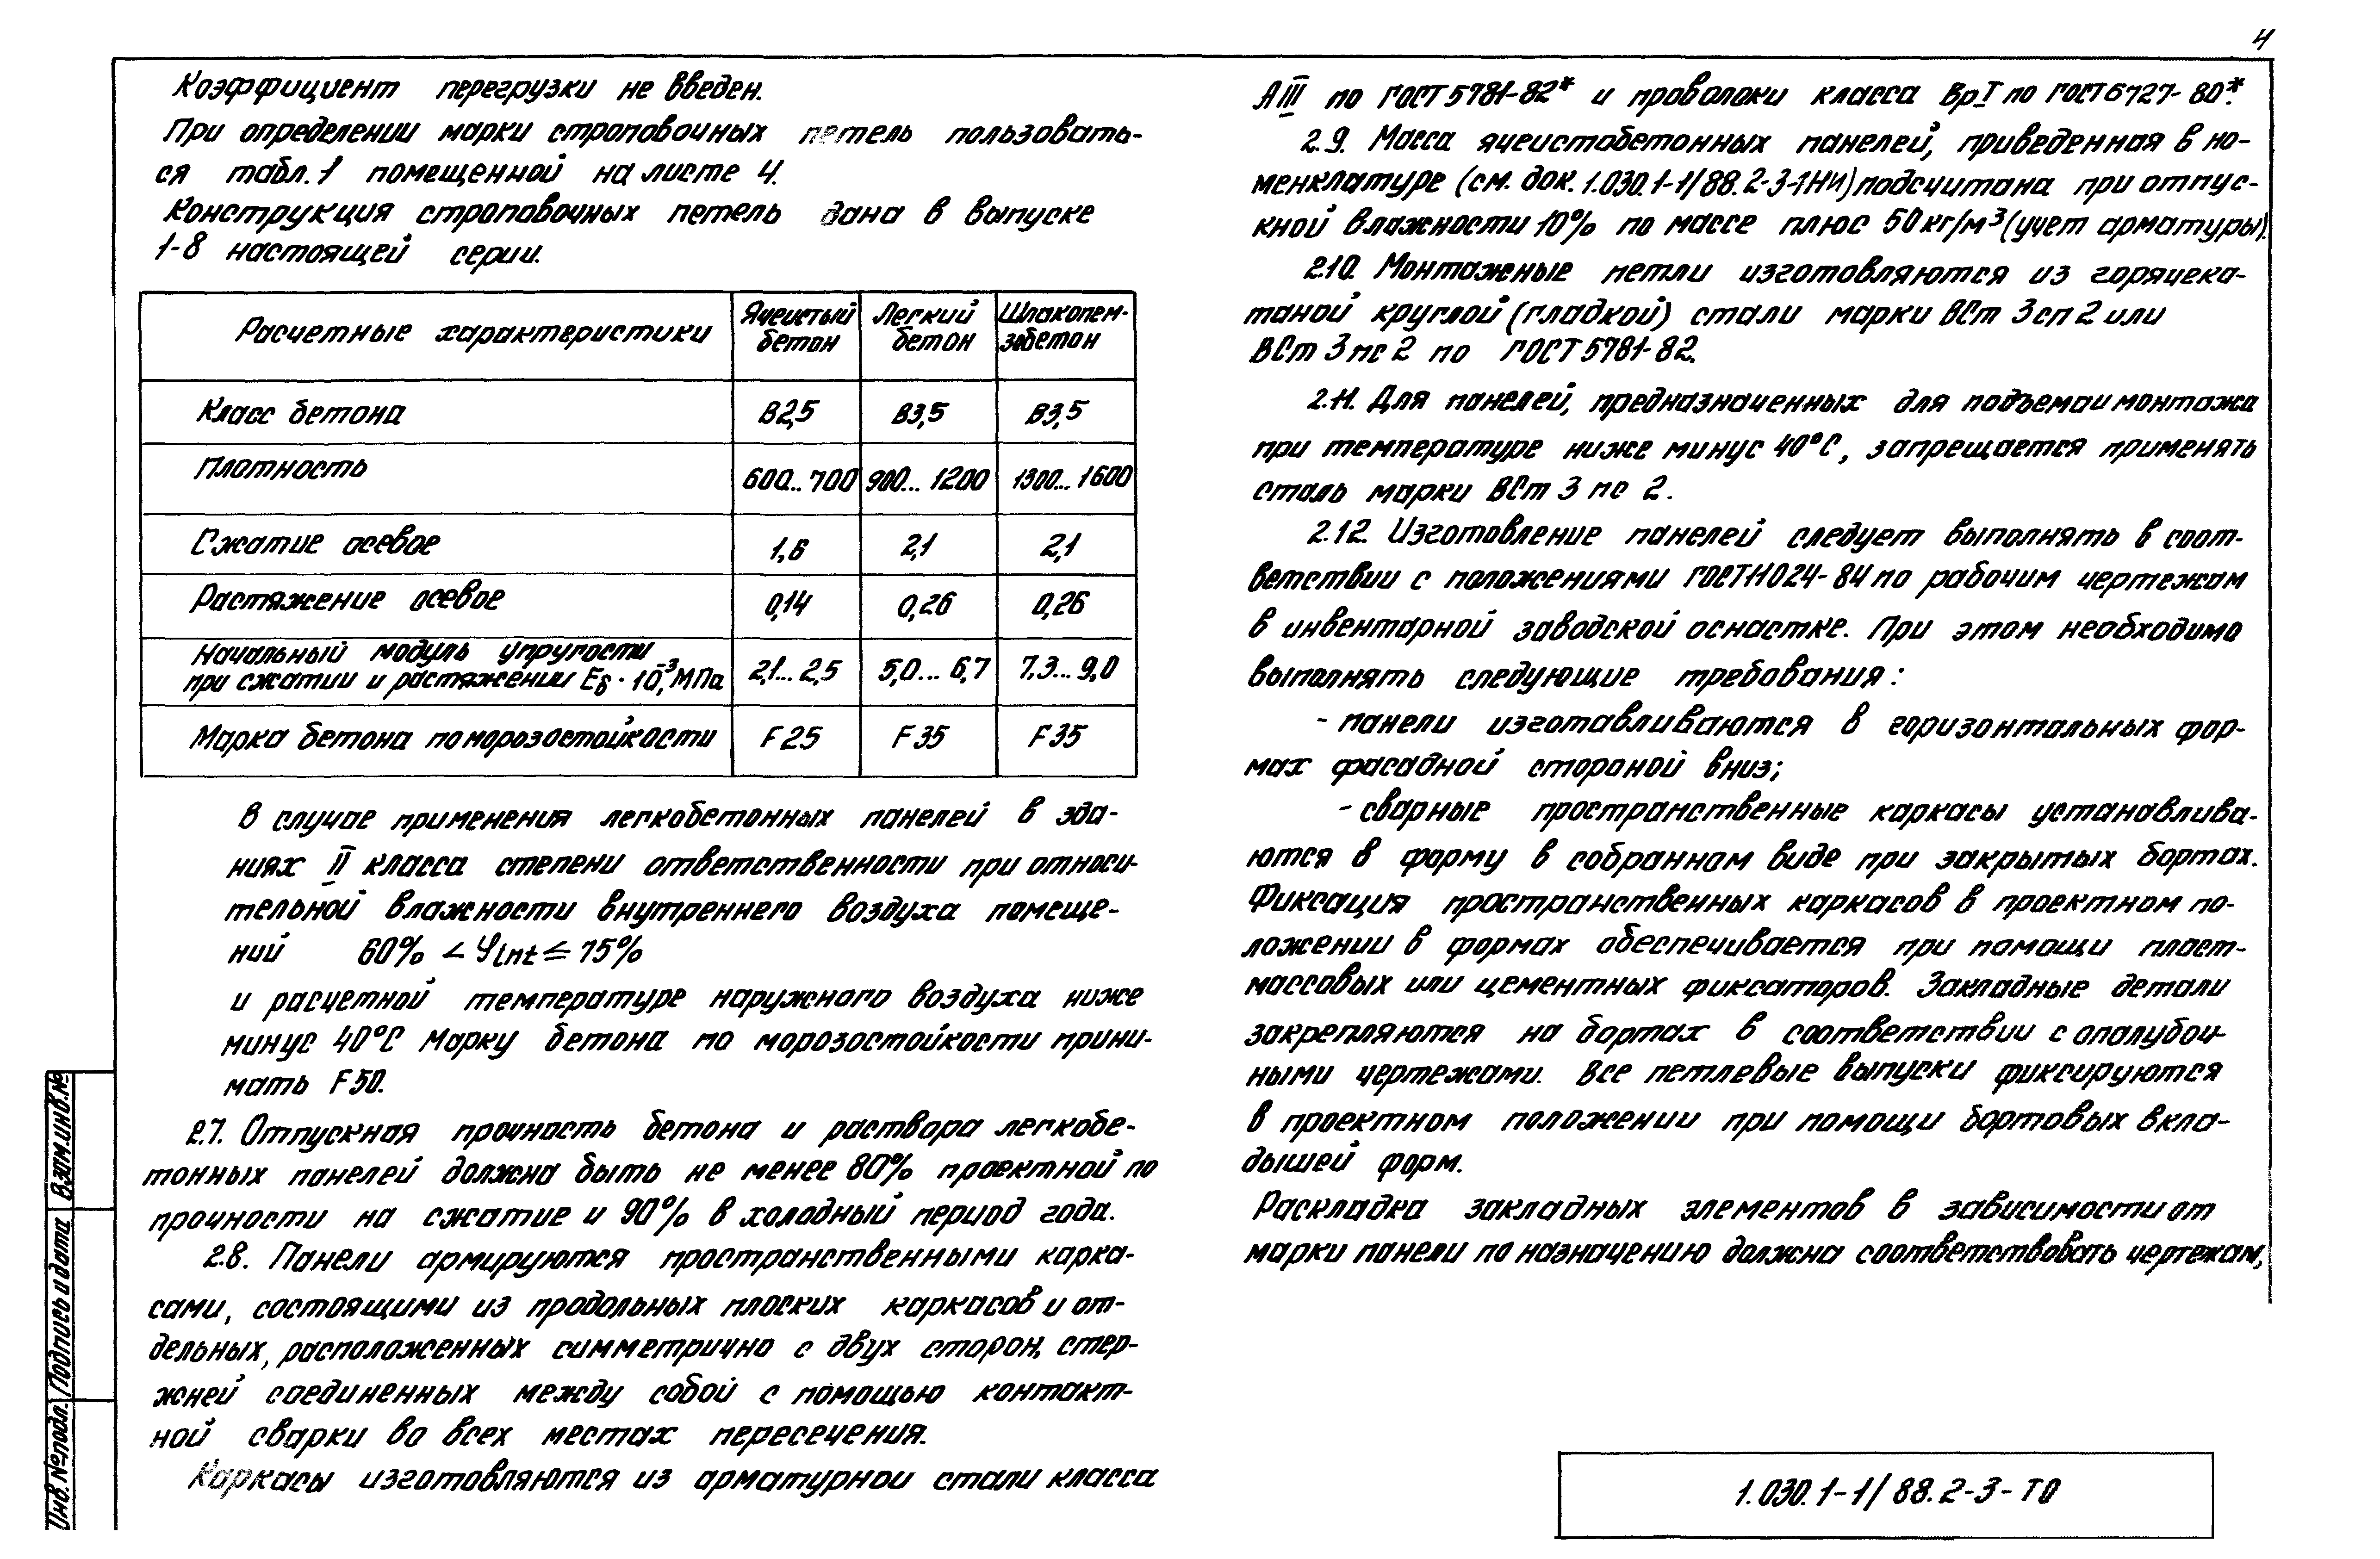 4
Коэффициент перегрузки не введен.
При определении марки строповочных петель пользовать-
ся табл. 1 помещенной на листе 4.
Конструкция строповочных петель дана в выпуске
1-8 настоящей серии.
Расчетные характеристики | Ячеистый бетон | Легкий бетон | Шлакопем-зобетон
Класс бетона | В2,5 | В3,5 | В3,5
Плотность | 600...700 | 900...1200 | 1300...1600
Сжатие осевое | 1,6 | 2,1 | 2,1
Растяжение осевое | 0,14 | 0,26 | 0,26
Начальный модуль упругости
при сжатии и растяжении Eб·10⁻³, МПа | 2,1...2,5 | 5,0...6,7 | 7,3...9,0
Марка бетона по морозостойкости | F 25 | F 35 | F 35
В случае применения легкобетонных панелей в зда-
ниях II класса степени ответственности при относи-
тельной влажности внутреннего воздуха помеще-
ний 60% < φint ≤ 75%
и расчетной температуре наружного воздуха ниже
минус 40°С марку бетона по морозостойкости прини-
мать F 50.
2.7. Отпускная прочность бетона и раствора легкобе-
тонных панелей должна быть не менее 80% проектной по
прочности на сжатие и 90% в холодный период года.
2.8. Панели армируются пространственными карка-
сами, состоящими из продольных плоских каркасов и от-
дельных, расположенных симметрично с двух сторон, стер-
жней соединенных между собой с помощью контакт-
ной сварки во всех местах пересечения.
Каркасы изготовляются из арматурной стали класса
АIII по ГОСТ 5781-82* и проволоки класса ВрI по ГОСТ 6727-80*.
2.9. Масса ячеистобетонных панелей, приведенная в но-
менклатуре (см. док. 1.030.1-1/88.2-3-1НИ) подсчитана при отпус-
кной влажности 10% по массе плюс 50 кг/м³ (учет арматуры).
2.10. Монтажные петли изготовляются из горячека-
таной круглой (гладкой) стали марки ВСт 3 сп 2 или
ВСт 3 пс 2 по ГОСТ 5781-82.
2.11. Для панелей, предназначенных для подъема и монтажа
при температуре ниже минус 40°С, запрещается применять
сталь марки ВСт 3 пс 2.
2.12. Изготовление панелей следует выполнять в соот-
ветствии с положениями ГОСТ 11024-84 по рабочим чертежам
в инвентарной заводской оснастке. При этом необходимо
выполнять следующие требования:
- панели изготавливаются в горизонтальных фор-
мах фасадной стороной вниз;
- сварные пространственные каркасы устанавлива-
ются в форму в собранном виде при закрытых бортах.
Фиксация пространственных каркасов в проектном по-
ложении в формах обеспечивается при помощи пласт-
массовых или цементных фиксаторов. Закладные детали
закрепляются на бортах в соответствии с опалубоч-
ными чертежами. Все петлевые выпуски фиксируются
в проектном положении при помощи бортовых вкла-
дышей форм.
Раскладка закладных элементов в зависимости от
марки панели по назначению должна соответствовать чертежам,
Взам.инв.№
Подпись и дата
Инв.№подл.
1.030.1-1/88.2-3-ТО